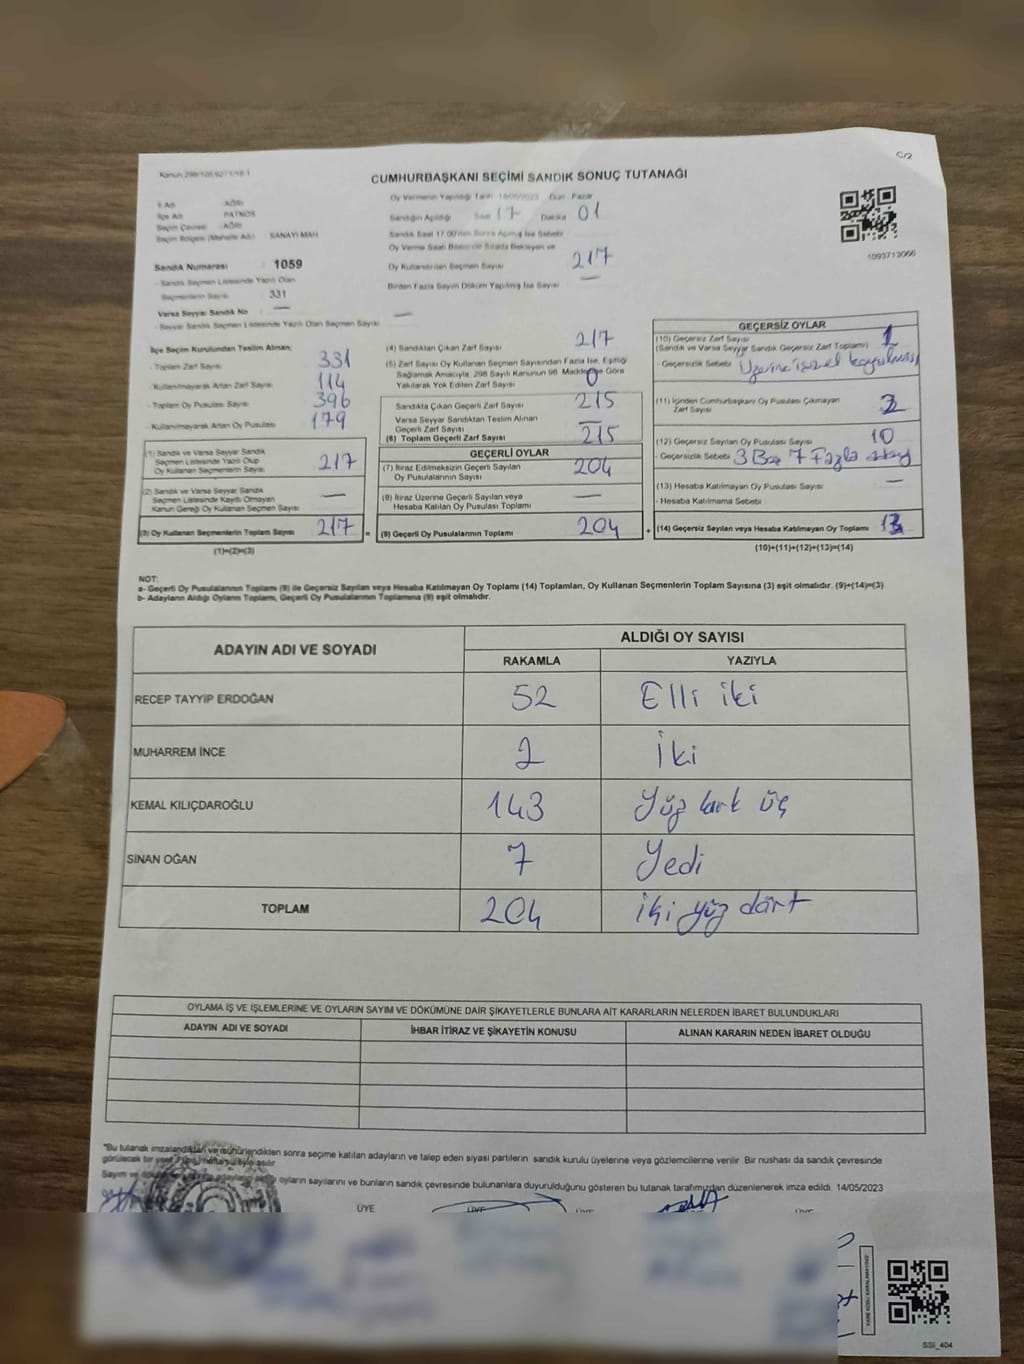 C/2
Kanun 298/105,6271/18-1
CUMHURBAŞKANI SEÇİMİ SANDIK SONUÇ TUTANAĞI
İl Adı AĞRI
İlçe Adı PATNOS
Seçim Çevresi AĞRI
Seçim Bölgesi (Mahalle Adı) SANAYİ MAH
Sandık Numarası 1059
- Sandık Seçmen Listesinde Yazılı Olan
Seçmenlerin Sayısı 331
Varsa Seyyar Sandık No —
- Seyyar Sandık Seçmen Listesinde Yazılı Olan Seçmen Sayısı —
Oy Vermenin Yapıldığı Tarih 14/05/2023 Gün Pazar
Sandığın Açıldığı Saat 17 Dakika 01
Sandık Saat 17.00'den Sonra Açılmış İse Sebebi
Oy Verme Saati Bitiminde Sırada Bekleyen ve
Oy Kullandırılan Seçmen Sayısı 217
Birden Fazla Sayım Döküm Yapılmış İse Sayısı —
1093713066
İlçe Seçim Kurulundan Teslim Alınan;
- Toplam Zarf Sayısı 331
- Kullanılmayarak Artan Zarf Sayısı 114
- Toplam Oy Pusulası Sayısı 396
- Kullanılmayarak Artan Oy Pusulası 179
(1) Sandık ve Varsa Seyyar Sandık
Seçmen Listesinde Yazılı Olup
Oy Kullanan Seçmenlerin Sayısı 217
(2) Sandık ve Varsa Seyyar Sandık
Seçmen Listesinde Kayıtlı Olmayan
Kanun Gereği Oy Kullanan Seçmen Sayısı —
(3) Oy Kullanan Seçmenlerin Toplam Sayısı 217 =
(1)+(2)=(3)
(4) Sandıktan Çıkan Zarf Sayısı 217
(5) Zarf Sayısı Oy Kullanan Seçmen Sayısından Fazla İse, Eşitliği
Sağlamak Amacıyla, 298 Sayılı Kanunun 98. Maddesine Göre
Yakılarak Yok Edilen Zarf Sayısı 0
Sandıkta Çıkan Geçerli Zarf Sayısı 215
Varsa Seyyar Sandıktan Teslim Alınan
Geçerli Zarf Sayısı —
(6) Toplam Geçerli Zarf Sayısı 215
GEÇERLİ OYLAR
(7) İtiraz Edilmeksizin Geçerli Sayılan
Oy Pusulalarının Sayısı 204
(8) İtiraz Üzerine Geçerli Sayılan veya
Hesaba Katılan Oy Pusulası Toplamı —
(9) Geçerli Oy Pusulalarının Toplamı 204 +
GEÇERSİZ OYLAR
(10) Geçersiz Zarf Sayısı 1
(Sandık ve Varsa Seyyar Sandık Geçersiz Zarf Toplamı)
- Geçersizlik Sebebi Üzerine
(11) İçinden Cumhurbaşkanı Oy Pusulası Çıkmayan
Zarf Sayısı 2
(12) Geçersiz Sayılan Oy Pusulası Sayısı 10
- Geçersizlik Sebebi 3 Boş 7 Fazla
(13) Hesaba Katılmayan Oy Pusulası Sayısı —
- Hesaba Katılmama Sebebi
(14) Geçersiz Sayılan veya Hesaba Katılmayan Oy Toplamı 13
(10)+(11)+(12)+(13)=(14)
NOT:
a- Geçerli Oy Pusulalarının Toplamı (9) ile Geçersiz Sayılan veya Hesaba Katılmayan Oy Toplamı (14) Toplamları, Oy Kullanan Seçmenlerin Toplam Sayısına (3) eşit olmalıdır. (9)+(14)=(3)
b- Adayların Aldığı Oyların Toplamı, Geçerli Oy Pusulalarının Toplamına (9) eşit olmalıdır.
ADAYIN ADI VE SOYADI ALDIĞI OY SAYISI
RAKAMLA YAZIYLA
RECEP TAYYİP ERDOĞAN 52 Elli iki
MUHARREM İNCE 2 İki
KEMAL KILIÇDAROĞLU 143 Yüz kırk üç
SİNAN OĞAN 7 Yedi
TOPLAM 204 iki yüz dört
OYLAMA İŞ VE İŞLEMLERİNE VE OYLARIN SAYIM VE DÖKÜMÜNE DAİR ŞİKAYETLERLE BUNLARA AİT KARARLARIN NELERDEN İBARET BULUNDUKLARI
ADAYIN ADI VE SOYADI İHBAR İTİRAZ VE ŞİKAYETİN KONUSU ALINAN KARARIN NEDEN İBARET OLDUĞU
"Bu tutanak imzalandıktan ve mühürlendikten sonra seçime katılan adayların ve talep eden siyasi partilerin sandık kurulu üyelerine veya gözlemcilerine verilir. Bir nüshası da sandık çevresinde
görülecek bir yere
Sayım ve oyların sayılarını ve bunların sandık çevresinde bulunanlara duyurulduğunu gösteren bu tutanak tarafımızdan düzenlenerek imza edildi. 14/05/2023
ÜYE ÜYE ÜYE ÜYE
KARE KODU KARALAMAYINIZ!
SSI_404